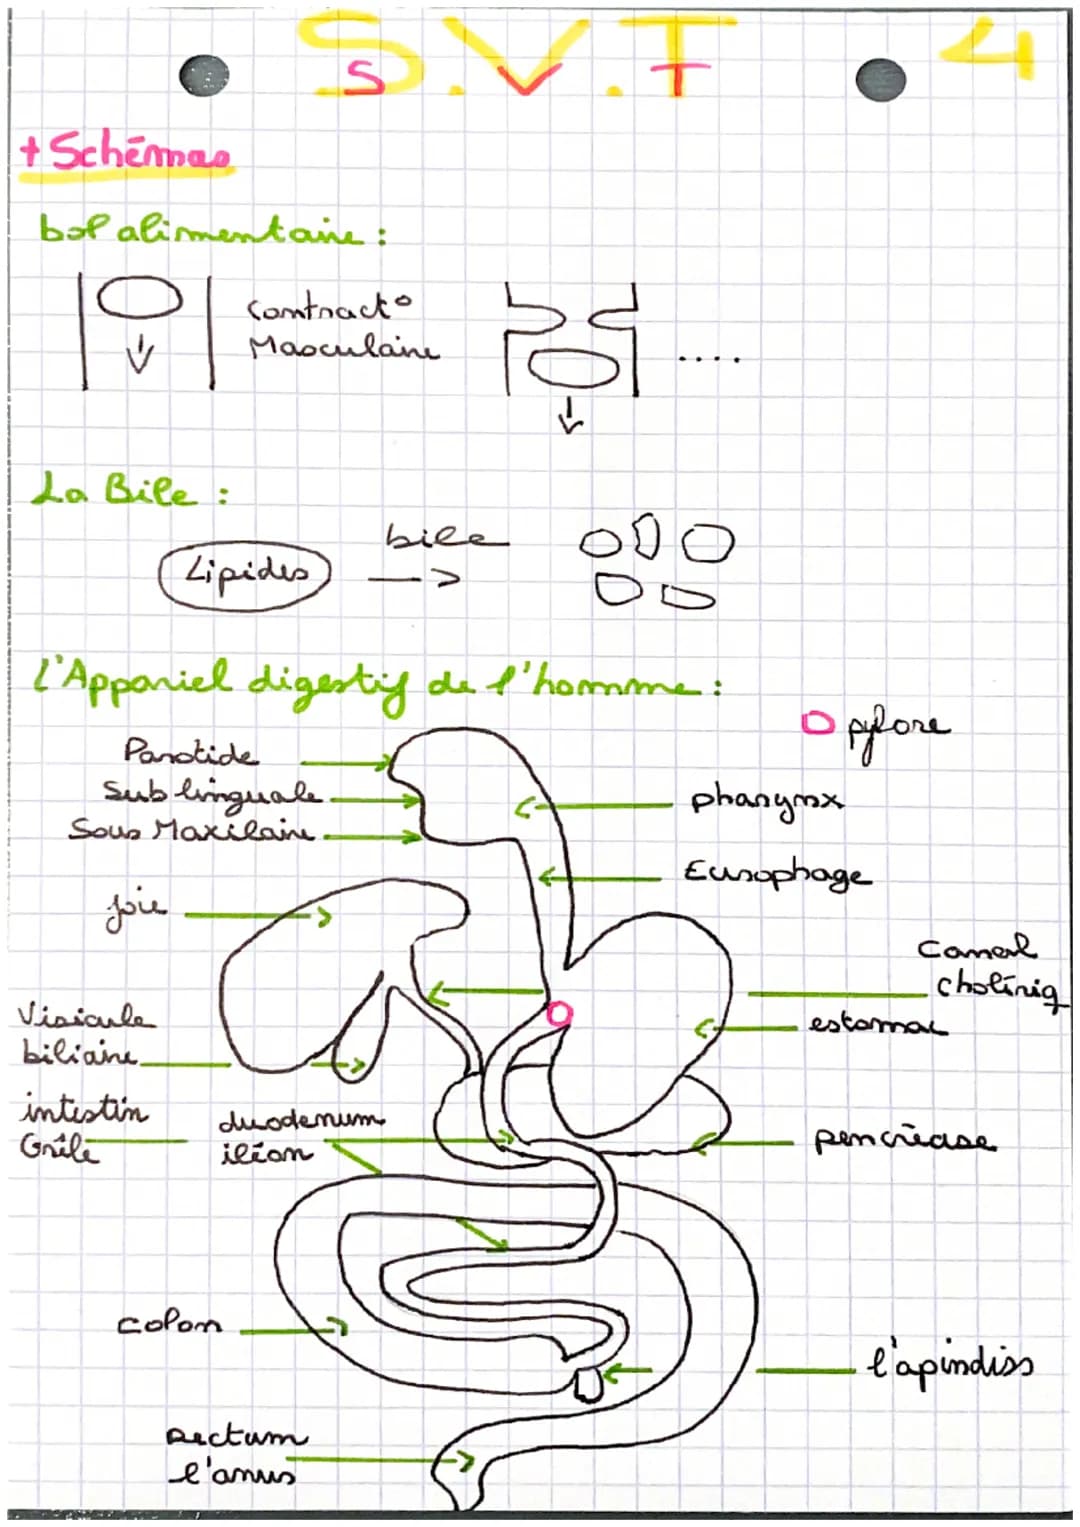 S.V.T 4
S V T
+ Schémas
bol alimentaire :
Contract°
Masculaire
....
La Bile :
Lipides
bile
l'Appariel digestif de l'homme :
pylore
Parotide
Sub linguale
Sous Maxilaire
pharynx
Eusophage
foie
Canal
cholériq
Visicule
biliaire
estomac
intestin
Grêle
duodenum
iléon
pencréase
colon
l'apindiss
rectum
l'anus